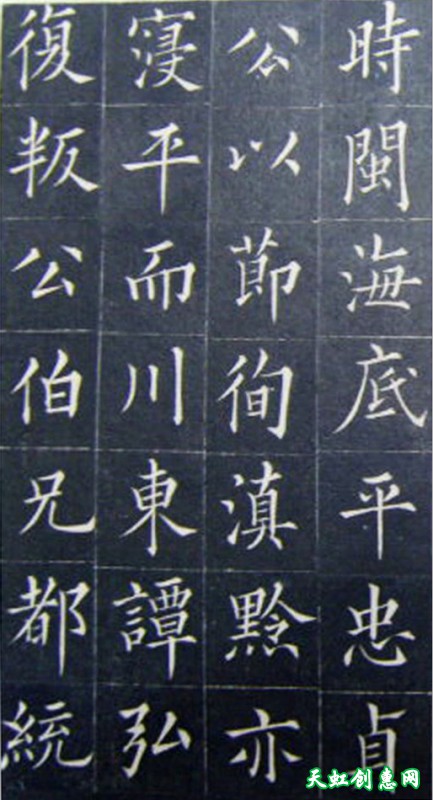 時閩海底平忠貞
公以莭徇滇黔亦
寑平而川東譚弘
復叛公伯兄都統
天虹创意网